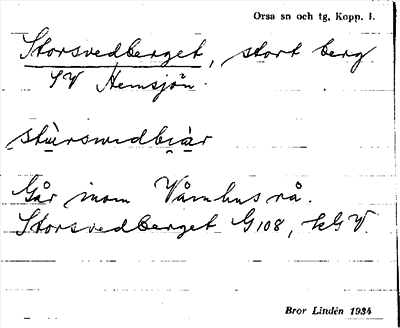 Orsa sn och tg, Kopp. l.
Storsvedberget, stort berg
SV Hemsjön.
stùrswedbjàr
Går inom Våmhus rå.
Storsvedberget G108, kG V.
Bror Lindén 1934